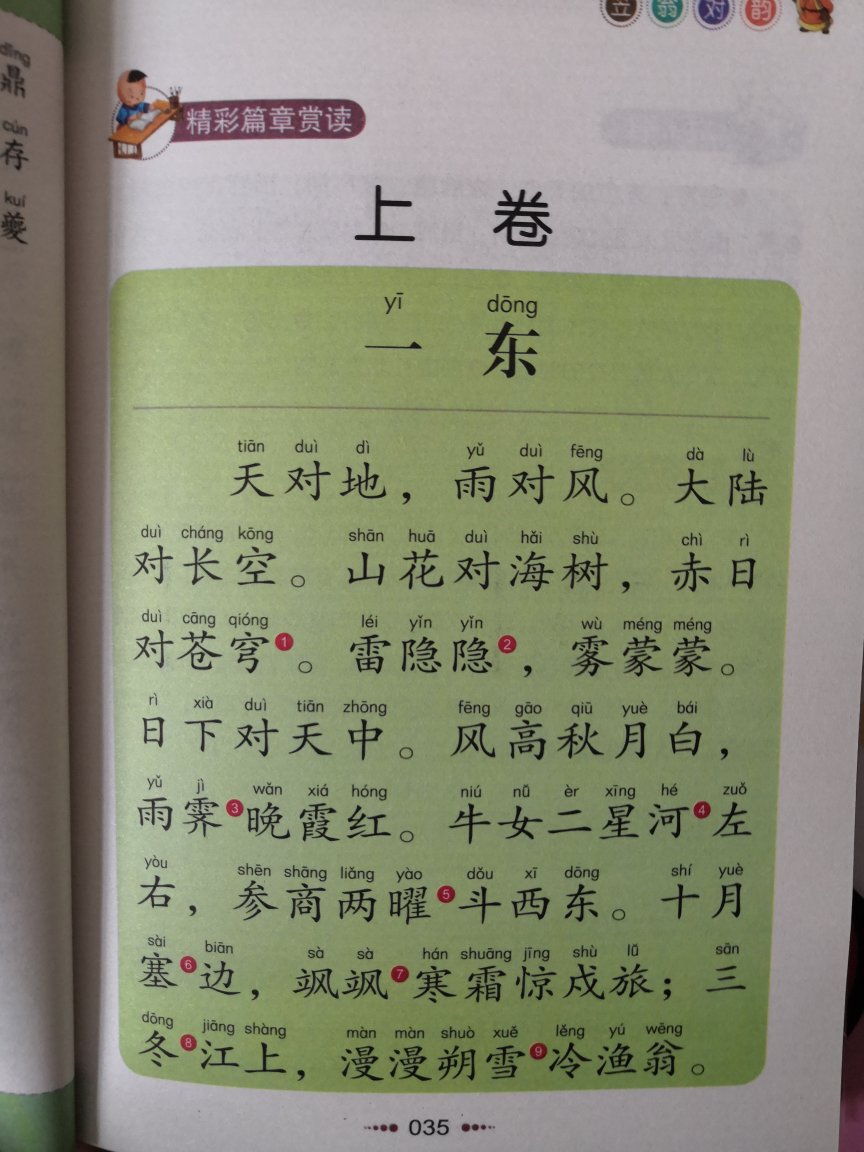 立翁对韵
dǐng
鼎
cún
存
kuí
夔
精彩篇章赏读
上 卷
yī dōng
一 东
tiān duì dì yǔ duì fēng dà lù
天对地，雨对风。大陆
duì cháng kōng shān huā duì hǎi shù chì rì
对长空。山花对海树，赤日
duì cāng qióng léi yǐn yǐn wù méng méng
对苍穹1。雷隐隐2，雾蒙蒙。
rì xià duì tiān zhōng fēng gāo qiū yuè bái
日下对天中。风高秋月白，
yǔ jì wǎn xiá hóng niú nǚ èr xīng hé zuǒ
雨霁3晚霞红。牛女二星河4左
yòu shēn shāng liǎng yào dǒu xī dōng shí yuè
右，参商两曜5斗西东。十月
sài biān sà sà hán shuāng jīng shù lǚ sān
塞6边，飒飒7寒霜惊戍旅；三
dōng jiāng shàng màn màn shuò xuě lěng yú wēng
冬8江上，漫漫朔雪9冷渔翁。
035